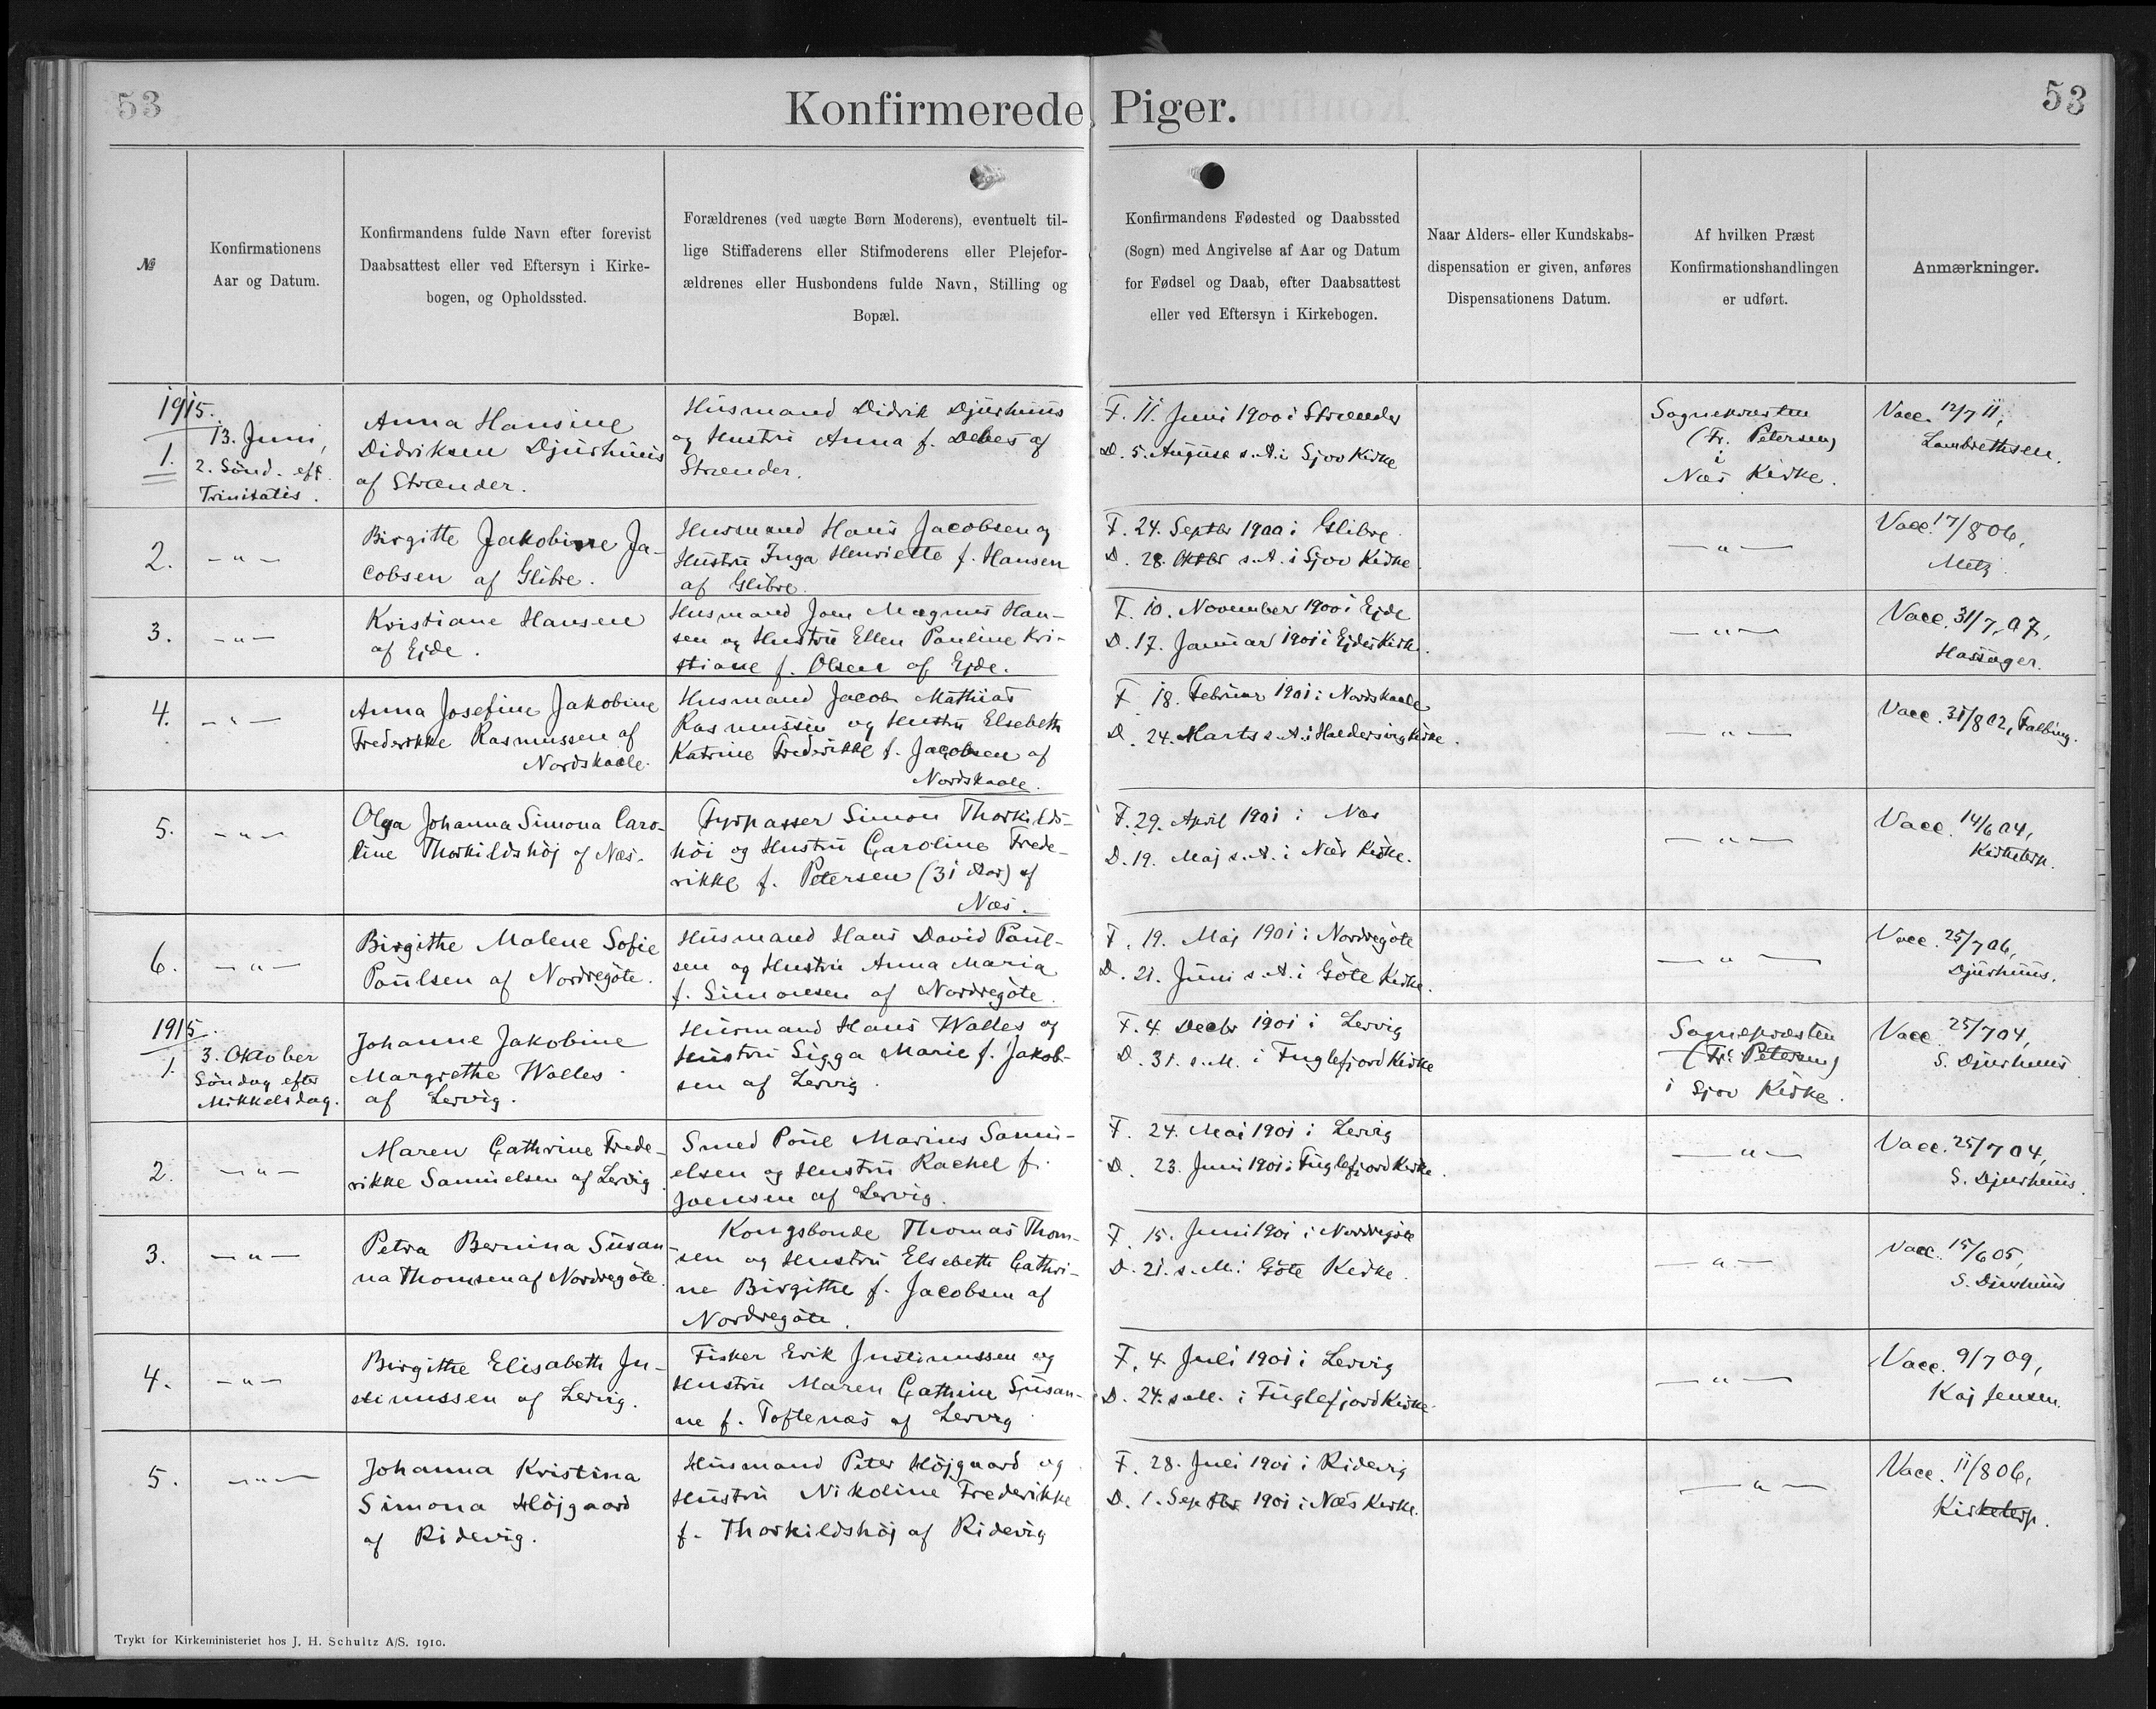 53
Konfirmerede Piger.
53
№
Konfirmationens
Aar og Datum.
Konfirmandens fulde Navn efter forevist
Daabsattest eller ved Eftersyn i Kirke-
bogen, og Opholdssted.
Forældrenes (ved uægte Børn Moderens), eventuelt til-
lige Stiffaderens eller Stifmoderens eller Plejefor-
ældrenes eller Husbondens fulde Navn, Stilling og
Bopæl.
Konfirmandens Fødested og Daabssted
(Sogn) med Angivelse af Aar og Datum
for Fødsel og Daab, efter Daabsattest
eller ved Eftersyn i Kirkebogen.
Naar Alders- eller Kundskabs-
dispensation er given, anføres
Dispensationens Datum.
Af hvilken Præst
Konfirmationshandlingen
er udført.
Anmærkninger.
1915.
1.
13. Juni,
2. Sönd. eft.
Trinitatis.
Anna Hansine
Didriksen Djurhuus
af Strænder.
Husmand Didrik Djurhuus
og Hustru Anna f. Debes af
Strænder.
F. 11. Juni 1900 i Strænder
D. 5. August s. A. i Sjov Kirke
Sognepræsten
(Fr. Petersen)
i
Næs Kirke.
Vacc. 12/7 11,
Lambrethsen.
2.
-"-
Birgitte Jakobine Ja-
cobsen af Glibre.
Husmand Hans Jacobsen og
Hustru Inga Henriette f. Hansen
af Glibre.
F. 24. Septbr 1900 i Glibre.
D. 28. Oktbr s. A. i Sjov Kirke.
-"-
Vacc. 17/8 06,
Metz.
3.
-"-
Kristiane Hansen
af Ejde.
Husmand Joen Magnus Han-
sen og Hustru Ellen Pauline Kri-
stiane f. Olsen af Ejde.
F. 10. November 1900 i Ejde
D. 17. Januar 1901 i Ejde Kirke.
-"-
Vacc. 31/7. 07,
Hassager.
4.
-"-
Anna Josefine Jakobine
Frederikke Rasmussen af
Nordskaale.
Husmand Jacob Mathias
Rasmussen og Hustru Elsebeth
Katrine Frederikke f. Jacobsen af
Nordskaale.
F. 18. Februar 1901 i Nordskaale
D. 24. Marts s. A. i Haldersvig Kirke.
-"-
Vacc. 31/8 02, Falbing.
5.
-"-
Olga Johanna Simona Caro-
line Thorkildshöj af Næs.
Fyrpasser Simon Thorkilds-
höi og Hustru Caroline Frede-
rikke f. Petersen (31 Aar) af
Næs.
F. 29. April 1901 i Næs
D. 19. Maj s. A. i Næs Kirke.
-"-
Vacc. 14/6 04,
Kirketerp.
6.
-"-
Birgithe Malene Sofie
Poulsen af Nordregöte.
Husmand Hans David Poul-
sen og Hustru Anna Maria
f. Simonsen af Nordregöte.
F. 19. Maj 1901 i Nordregöte
D. 21. Juni s. A. i Göte Kirke.
-"-
Vacc. 25/7 06,
Djurhuus.
1915.
1.
3. Oktober
Söndag efter
Mikkelsdag.
Johanne Jakobine
Margrethe Walles
af Lervig.
Husmand Hans Walles og
Hustru Sigga Marie f. Jakob-
sen af Lervig.
F. 4. Decbr 1901 i Lervig
D. 31. s. M. i Fuglefjord Kirke
Sognepræsten
(Fr. Petersen)
i Sjov Kirke.
Vacc. 25/7 04,
S. Djurhuus
2.
-"-
Maren Cathrine Frede-
rikke Samuelsen af Lervig.
Smed Poul Marius Samu-
elsen og Hustru Rachel f.
Joensen af Lervig.
F. 24. Mai 1901 i Lervig
D. 23. Juni 1901 i Fuglefjord Kirke.
-"-
Vacc. 25/7 04,
S. Djurhuus.
3.
-"-
Petra Bernina Susan-
na Thomsen af Nordregöte.
Kongsbonde Thomas Thom-
sen og Hustru Elsebeth Cathri-
ne Birgithe f. Jacobsen af
Nordregöte.
F. 15. Juni 1901 i Nordregöte
D. 21. s. M. i Göte Kirke.
-"-
Vacc. 15/6 05,
S. Djurhuus
4.
-"-
Birgithe Elisabeth Ju-
stinussen af Lervig.
Fisker Erik Justinussen og
Hustru Maren Cathrine Susan-
ne f. Toftenæs af Lervig
F. 4. Juli 1901 i Lervig
D. 24. s. M. i Fuglefjord Kirke.
-"-
Vacc. 9/7 09,
Kaj Jensen.
5.
-"-
Johanna Kristina
Simona Höjgaard
af Ridevig.
Husmand Peter Höjgaard og
Hustru Nikoline Frederikke
f. Thorkildshöj af Ridevig
F. 28. Juli 1901 i Ridevig
D. 1. Septbr 1901 i Næs Kirke.
-"-
Vacc. 11/8 06,
Kirketerp.
Trykt for Kirkeministeriet hos J. H. Schultz A/S. 1910.